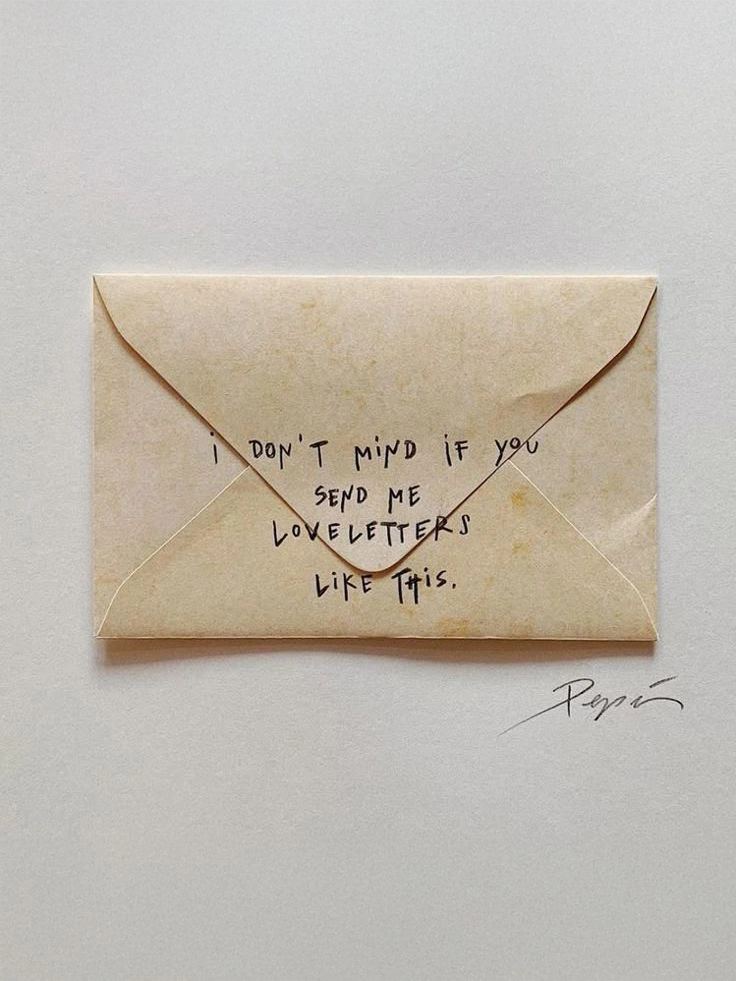 i DON'T MiND iF YOU
SEND ME
LOVELETTERS
LiKE THiS.
Pepín